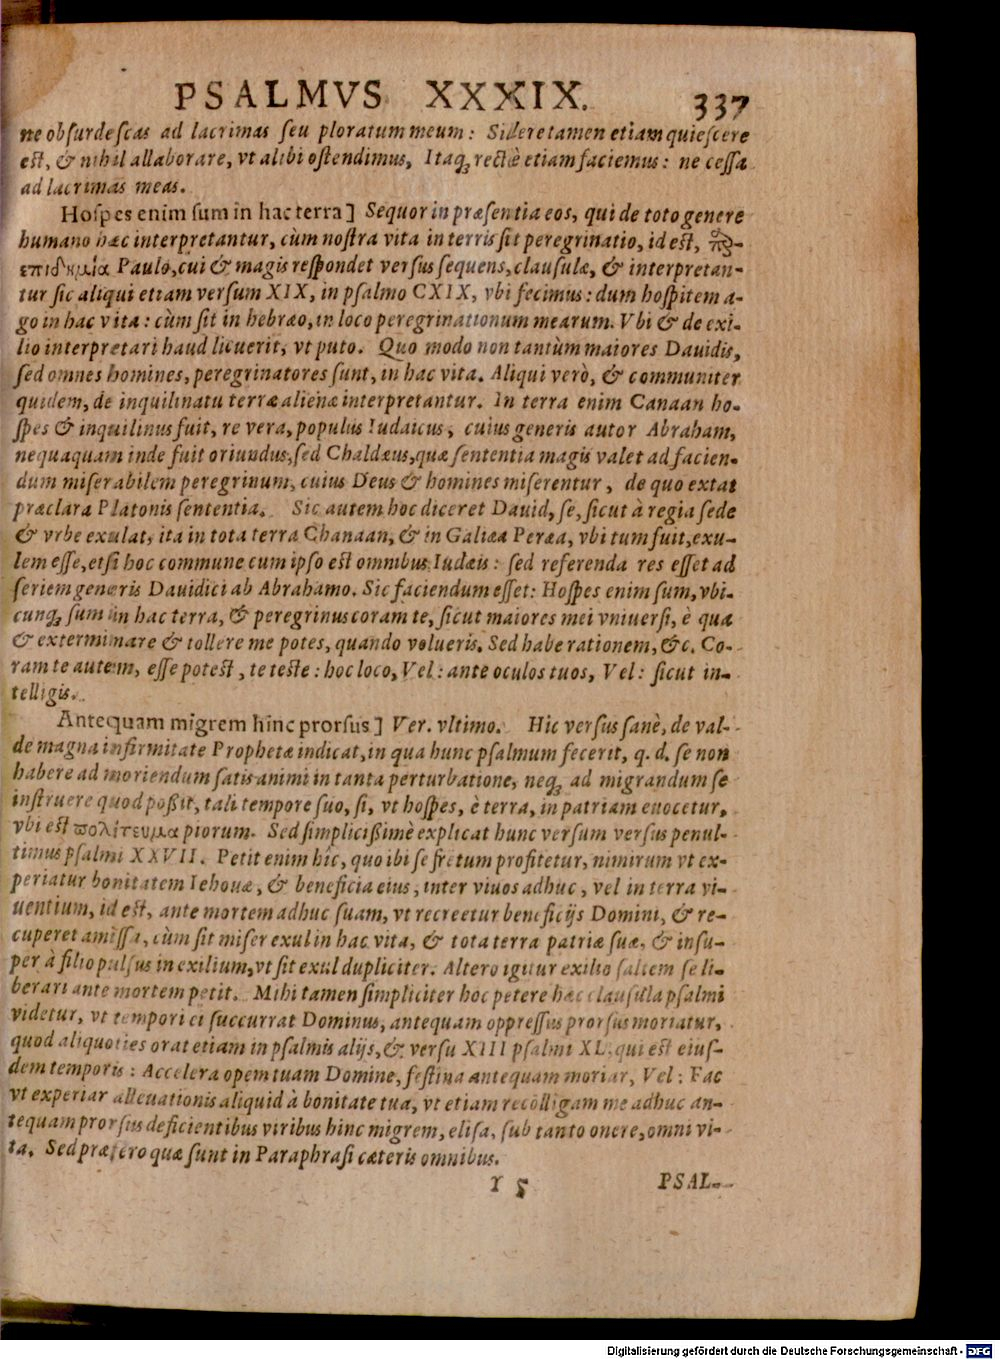 PSALMVS XXXIX. 337
ne obſurdeſcas ad lacrimas ſeu ploratum meum: Silere tamen etiam quieſcere
eſt, & nihil allaborare, vt alibi oſtendimus, Itaq; rectè etiam faciemus: ne ceſſa
ad lacrimas meas.
Hoſpes enim ſum in hac terra] Sequor in præſentia eos, qui de toto genere
humano hæc interpretantur, cùm noſtra vita in terris ſit peregrinatio, id eſt,
επιδημία Paulo, cui & magis reſpondet verſus ſequens, clauſulæ, & interpretan-
tur ſic aliqui etiam verſum XIX, in pſalmo CXIX, vbi fecimus: dum hoſpitem a-
go in hac vita: cùm ſit in hebræo, in loco peregrinationum mearum. Vbi & de exi-
lio interpretari haud licuerit, vt puto. Quo modo non tantùm maiores Dauidis,
ſed omnes homines, peregrinatores ſunt, in hac vita. Aliqui verò, & communiter
quidem, de inquilinatu terræ alienæ interpretantur. In terra enim Canaan ho-
ſpes & inquilinus fuit, re vera, populus Iudaicus, cuius generis autor Abraham,
nequaquam inde fuit oriundus, ſed Chaldæus, quæ ſententia magis valet ad facien-
dum miſerabilem peregrinum, cuius Deus & homines miſerentur, de quo extat
præclara Platonis ſententia. Sic autem hoc diceret Dauid, ſe, ſicut à regia ſede
& vrbe exulat, ita in tota terra Chanaan, & in Galiæa Peræa, vbi tum fuit, exu-
lem eſſe, etſi hoc commune cum ipſo eſt omnibus Iudæis: ſed referenda res eſſet ad
ſeriem generis Dauidici ab Abrahamo. Sic faciendum eſſet: Hoſpes enim ſum, vbi-
cunq; ſum in hac terra, & peregrinus coram te, ſicut maiores mei vniuerſi, è qua
& exterminare & tollere me potes, quando volueris. Sed habe rationem, &c. Co-
ram te autem, eſſe poteſt, te teſte: hoc loco, Vel: ante oculos tuos, Vel: ſicut in-
telligis.
Antequam migrem hinc prorſus] Ver. vltimo. Hic verſus ſanè, de val-
de magna infirmitate Prophetæ indicat, in qua hunc pſalmum fecerit, q. d. ſe non
habere ad moriendum ſatis animi in tanta perturbatione, neq; ad migrandum ſe
inſtruere quod poßit, tali tempore ſuo, ſi, vt hoſpes, è terra, in patriam euocetur,
vbi eſt πολίτευμα piorum. Sed ſimplicißimè explicat hunc verſum verſus penul-
timus pſalmi XXVII. Petit enim hîc, quo ibi ſe fretum profitetur, nimirum vt ex-
periatur bonitatem Iehouæ, & beneficia eius, inter viuos adhuc, vel in terra vi-
uentium, id eſt, ante mortem adhuc ſuam, vt recreetur beneficijs Domini, & re-
cuperet amiſſa, cùm ſit miſer exul in hac vita, & tota terra patriæ ſuæ, & inſu-
per à filio pulſus in exilium, vt ſit exul dupliciter. Altero igitur exilio ſaltem ſe li-
berari ante mortem petit. Mihi tamen ſimpliciter hoc petere hæc clauſula pſalmi
videtur, vt tempori ei ſuccurrat Dominus, antequam oppreſſus prorſus moriatur,
quod aliquoties orat etiam in pſalmis alijs, & verſu XIII pſalmi XL. qui eſt eiuſ-
dem temporis: Accelera opem tuam Domine, feſtina antequam moriar, Vel: Fac
vt experiar alleuationis aliquid à bonitate tua, vt etiam recolligam me adhuc an-
tequam prorſus deficientibus viribus hinc migrem, eliſa, ſub tanto onere, omni vi-
ta. Sed præfero quæ ſunt in Paraphraſi cæteris omnibus.
Y 5 PSAL-
Digitalisierung gefördert durch die Deutsche Forschungsgemeinschaft - DFG